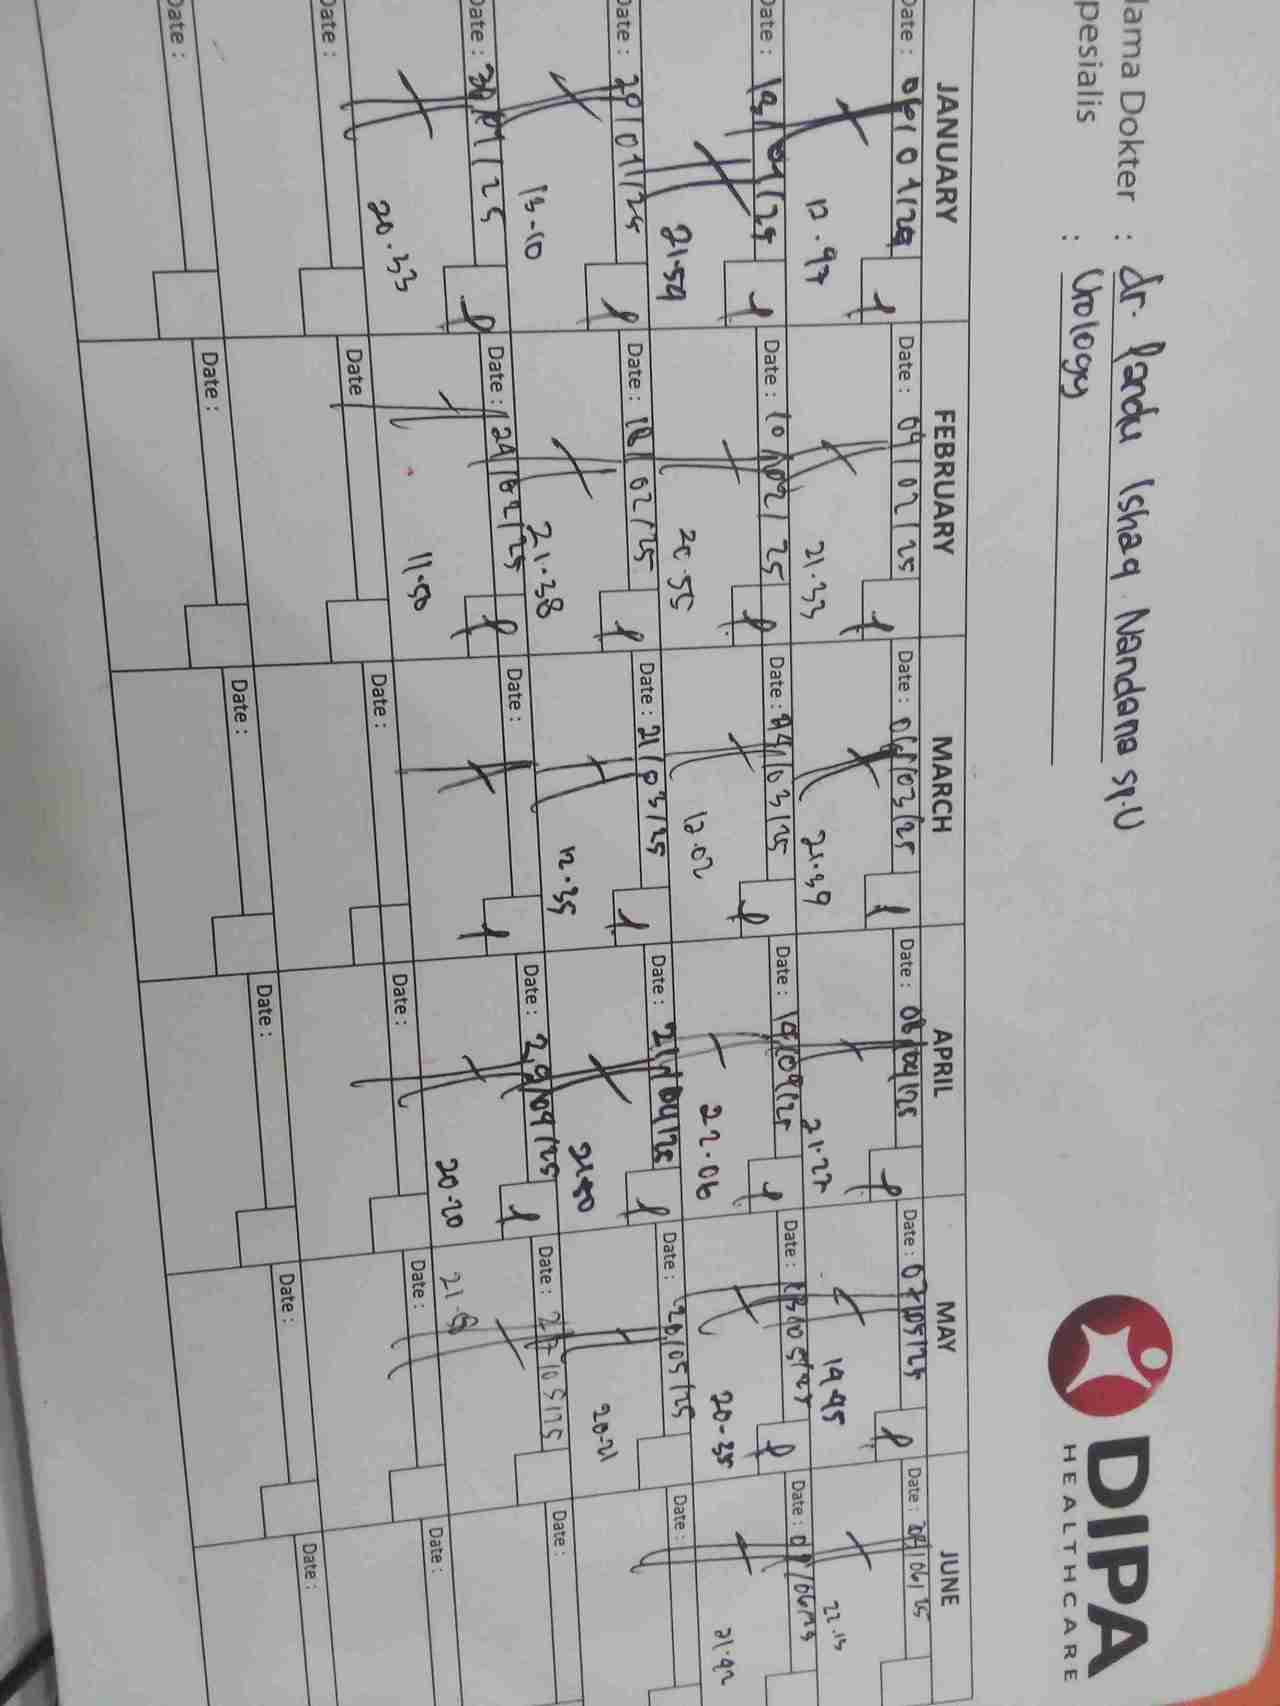 DIPA
HEALTHCARE
ama Dokter : dr. Pandu Ishaq Nandana Sp.U
pesialis : Urology
JANUARY FEBRUARY MARCH APRIL MAY JUNE
Date : Date : 04/02/25 Date : 06/03/25 Date : 08/04/25 Date : 07/05/25 Date : /06/25
21.33 21.39 21.27 19.45 22.15
Date : Date : 10/02/25 Date : 14/03/25 Date : 14/04/25 Date : 13/05/25 Date :
21.59 20.55 12.02 22.06 20-35 21.42
Date : 20/01/25 Date : 18/02/25 Date : 21/03/25 Date : 21/04/25 Date : 20/05/25 Date :
13-10 21.38 12.35 20-21
Date : 30/01/25 Date : 24/02/25 Date : Date : 29/04/25 Date : 27/05/25 Date :
20.33 11.50 20.20
Date : Date Date : Date : Date : Date :
Date : Date : Date : Date : Date : Date :